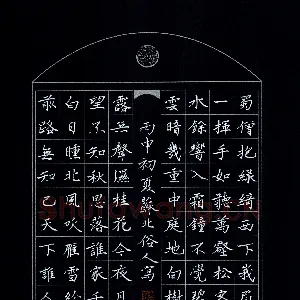 蜀僧抱綠綺西下峨
一揮手如聽萬壑松客
水餘響入霜鐘不覺碧
雲暗幾重中庭地白樹
丙申初夏蘇北俗人寫
露無聲濕桂花今夜月
望不知秋思落誰家千
白日曛北風吹雁雪紛
前路無知己天下誰人